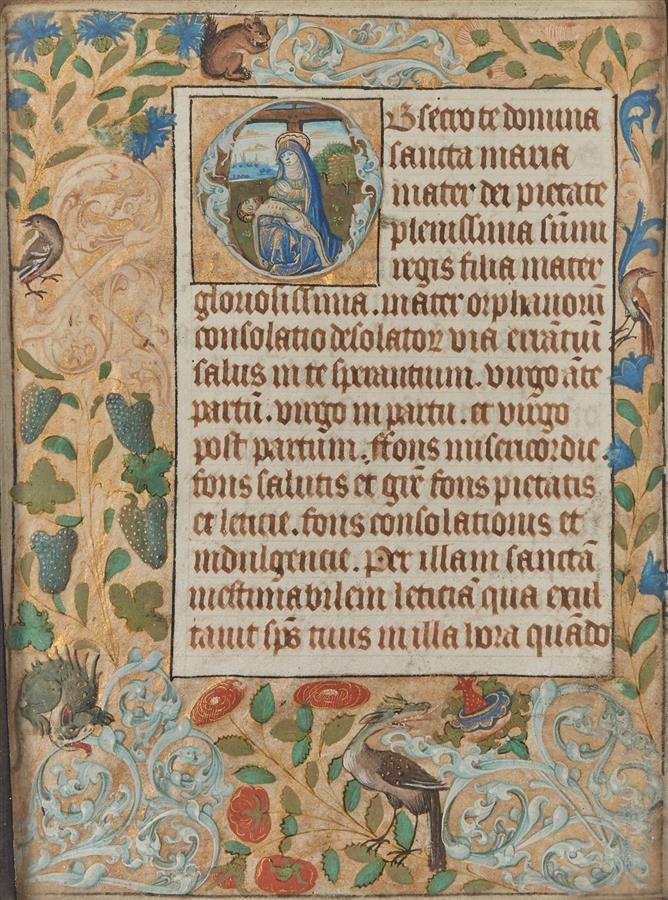 OBsecro te domina
sancta maria
mater dei pietate
plenissima sūmi
regis filia mater
gloriosissima. mater orphanorū
consolatio desolatoꝝ via errātiū
salus in te sperantium. virgo āte
partū. virgo in partu. et virgo
post partum. ffons misericordie
fons salutis et grē fons pietatis
et leticie. fons consolationis et
indulgencie. Per illam sanctā
inestimabilem leticiā qua exul
tauit sp̄s tuus in illa hora quādo